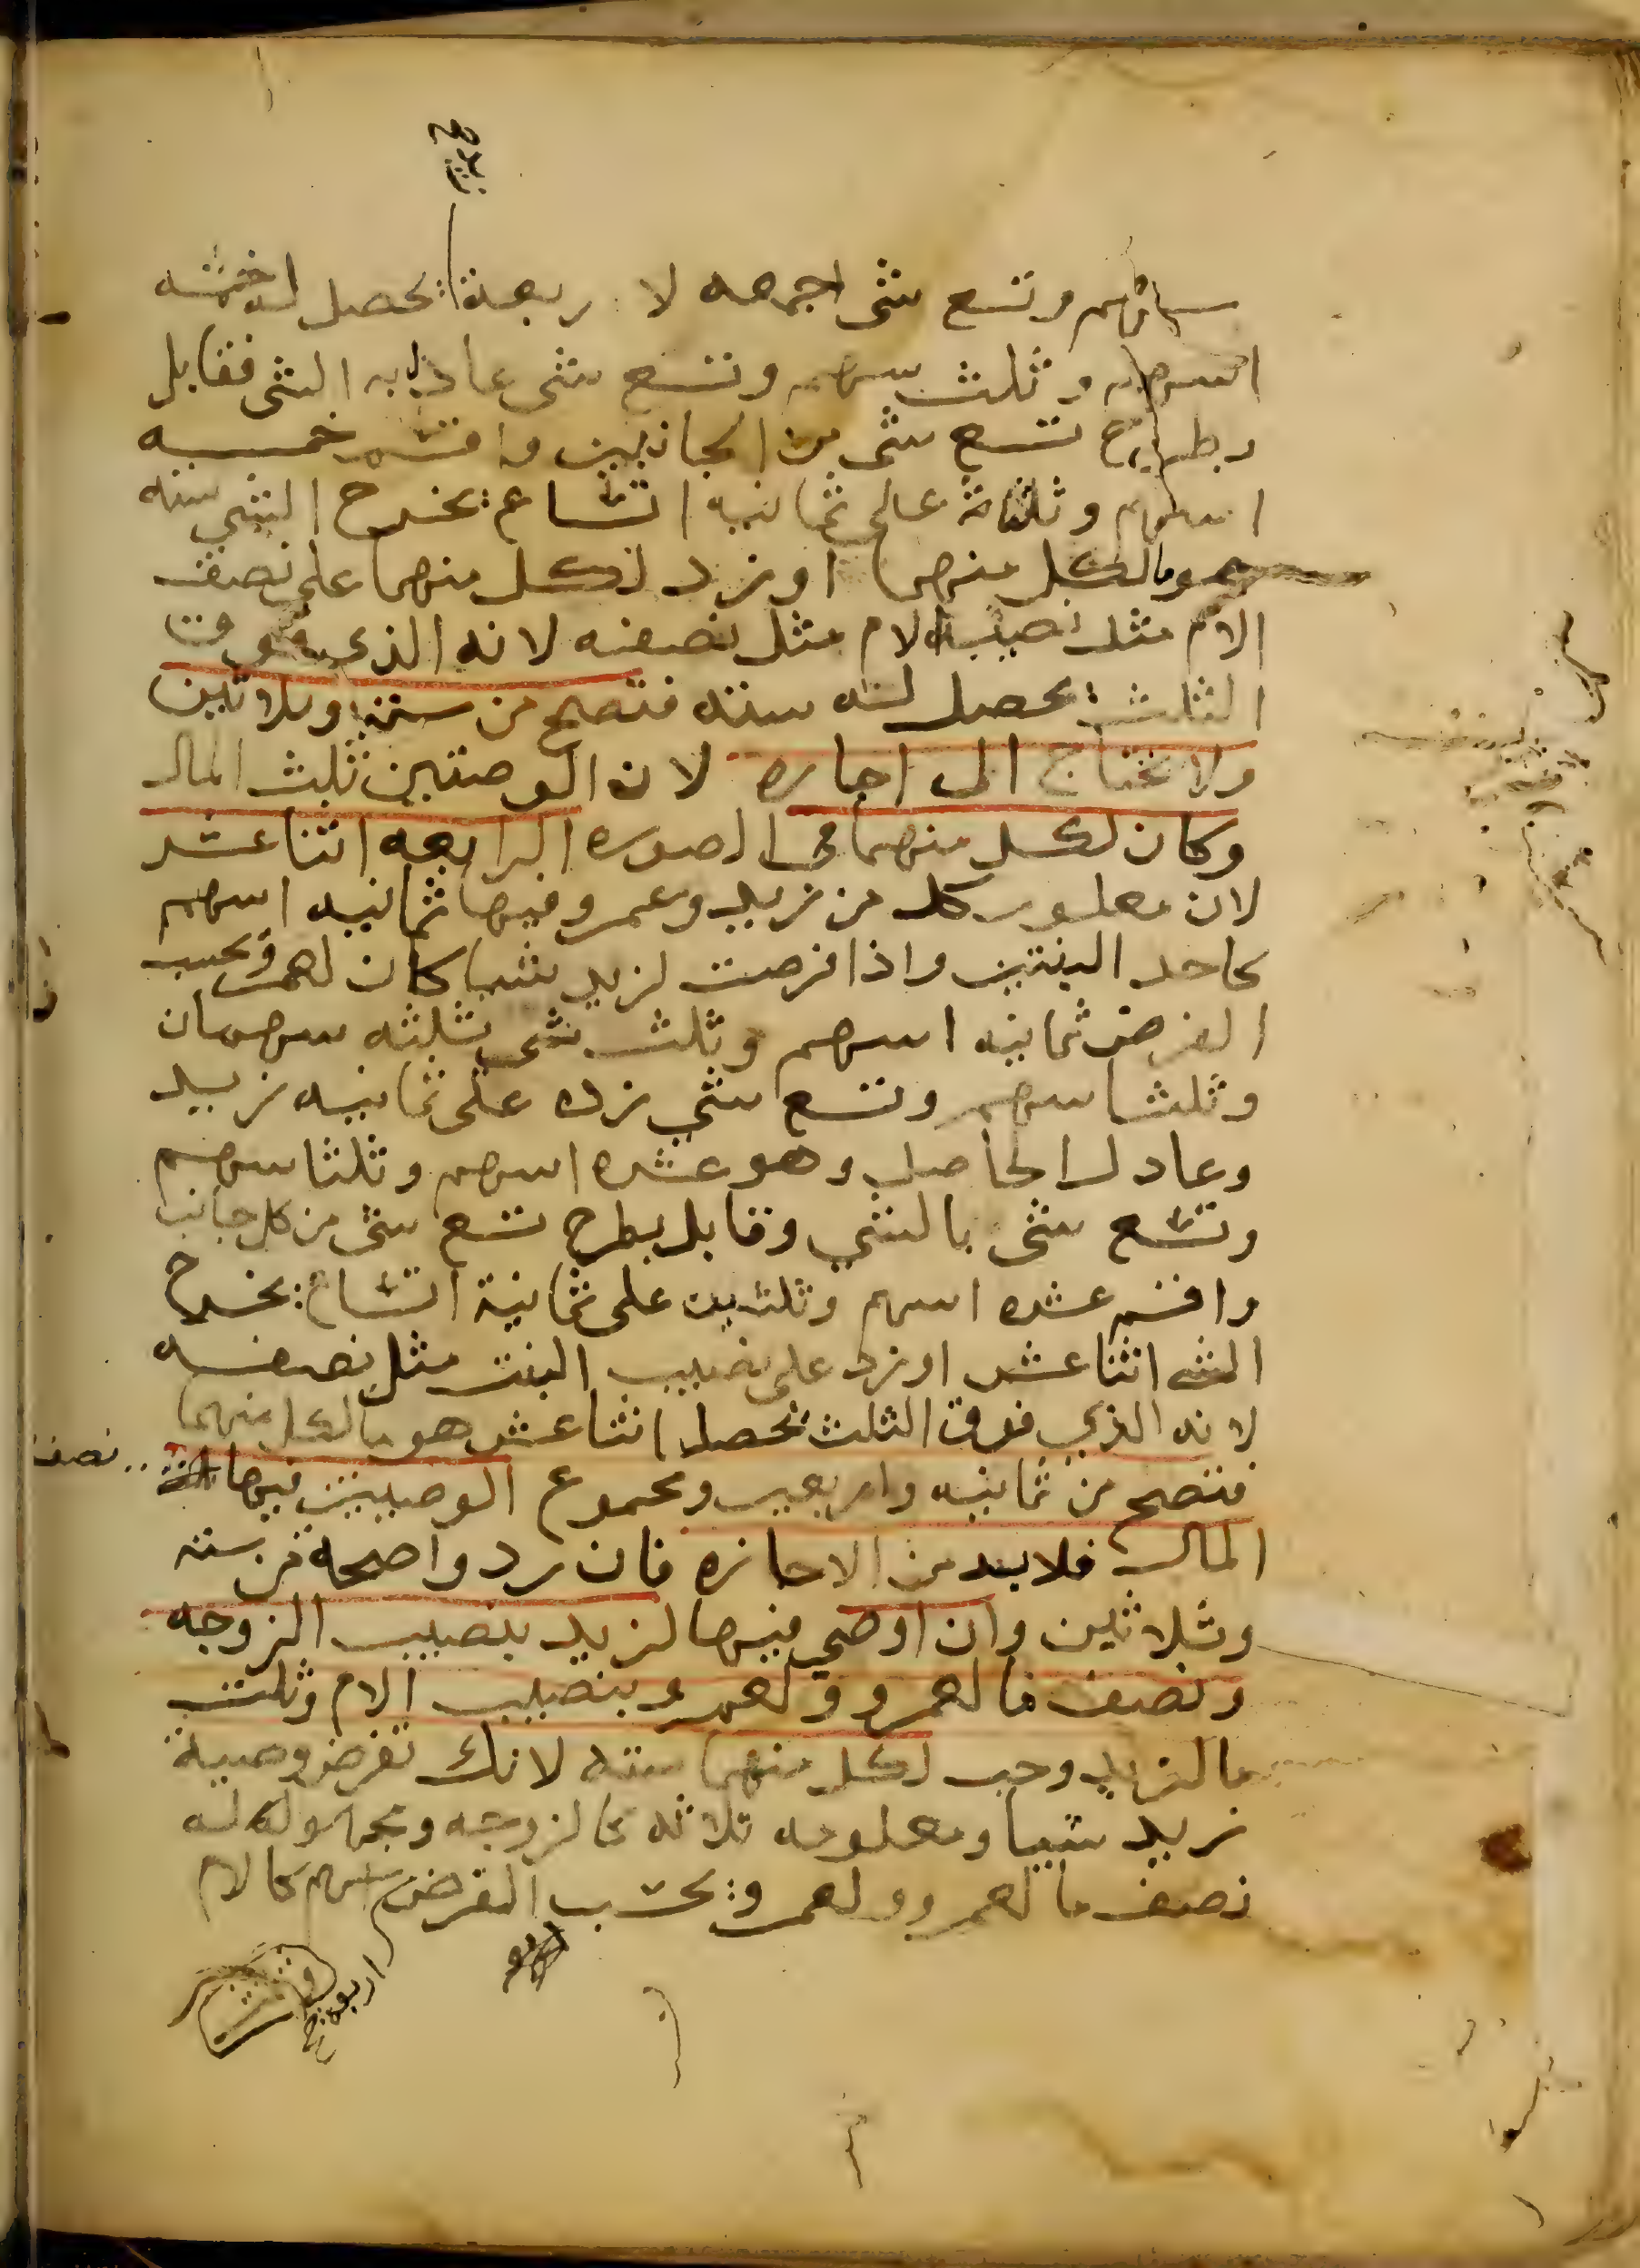 زيد صح
سهم وتسع شي اجمعه لا ربعة يحصل له خمسه
اسهم وثلث سهم وتسع شي عادل به الشي فقابل
بطرح تسع شي من الجانبين واقسم خمسه
اسهم وثلثا على ثمانيه اتساع يخرج الشي سته
هو ما لكل منهما او زد لكل منهما على نصف
الام مثل نصيب الام مثل نصفه لانه الذي فوق
الثلث يحصل له سته فتصح من سته وثلاثين
ولا تحتاج الى اجازه لان الوصيتين ثلث المال
وكان لكل منهما في الصوره الرابعه اثنا عشر
لان معلوم كل من زيد وعمرو فيها ثمانيه اسهم
كاحد البنتين واذا فرضت لزيد شيا كان لعمرو بحسب
الفرض ثمانيه اسهم وثلث شي ثلثه سهمان
وثلثا سهم وتسع شي زده على ثمانيه زيد
وعادل الحاصل وهو عشره اسهم وثلثا سهم
وتسع شي بالشي وقابل بطرح تسع شي من كل جانب
واقسم عشره اسهم وثلثين على ثمانية اتساع يخرج
الشي اثنا عشر او زد على نصيب البنت مثل نصفه
لانه الذي فوق الثلث يحصل اثنا عشر هو ما لكل منهما
فتصح من ثمانيه واربعين ومجموع الوصيتين فيها نصف
المال فلا بد من الاجازه فان رد واصحة من سته
وثلاثين وان اوصى فيها لزيد بنصيب الزوجه
ونصف ما لعمرو ولعمرو بنصيب الام وثلث
ما لزيد وجب لكل منهما سته لانك تفرض وصية
زيد شيا ومعلومه ثلاثه كالزوجه ومجهوله له
نصف ما لعمرو ولعمرو بحسب الفرض اسهم كالام
اربعة صح